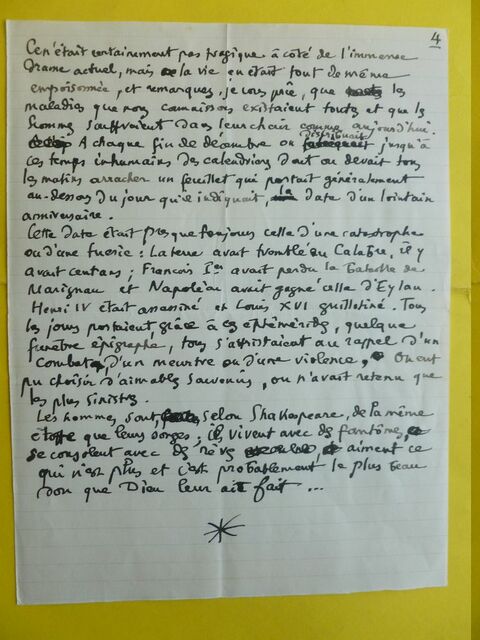 4
Ce n'était certainement pas tragique à côté de l'immense
drame actuel, mais la vie en était tout de même
empoisonnée, et remarquez, je vous prie, que les
maladies que nous connaissons existaient toutes et que les
hommes souffraient dans leur chair comme aujourd'hui.
A chaque fin de décembre on distribuait jusqu'à
ces temps inhumains des calendriers dont on devait tous
les matins arracher un feuillet qui portait généralement
au-dessous du jour qu'il indiquait, la date d'un lointain
anniversaire.
Cette date était presque toujours celle d'une catastrophe
ou d'une tuerie : La terre avait tremblé en Calabre, il y
avait cent ans ; François Ier avait perdu la bataille de
Marignan et Napoléon avait gagné celle d'Eylau.
Henri IV était assassiné et Louis XVI guillotiné. Tous
les jours portaient grâce à ces éphémérides, quelque
funèbre épigraphe, tous s'attristaient au rappel d'un
combat, d'un meurtre ou d'une violence, On eut
pu choisir d'aimables souvenirs, on n'avait retenu que
les plus sinistres.
Les hommes sont, selon Shakespeare, de la même
étoffe que leurs songes ; ils vivent avec des fantômes,
se consolent avec des rêves aiment ce
qui n'est plus et c'est probablement le plus beau
don que Dieu leur ait fait ...